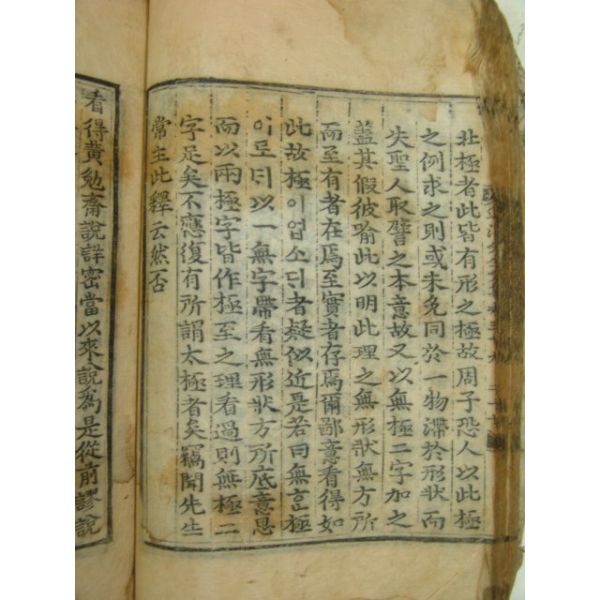 北極者此皆有形之極故周子恐人以此極
之例求之則或未免同於一物滯於形狀而
失聖人取譬之本意故又以無極二字加之
蓋其假彼喩此以明此理之無形狀無方所
而至有者在焉至實者存焉爾鄙意看得如
此故極이업소ᄃᆡ者疑似近是若曰無ᄒᆞᆫ極
이로ᄃᆡ以一無字帶看無形狀方所底意思
而以兩極字皆作極至之理看過則無極二
字足矣不應復有所謂太極者矣竊聞先生
常主此釋云然否
看得黃勉齋說詳密當以來說爲是從前謬說